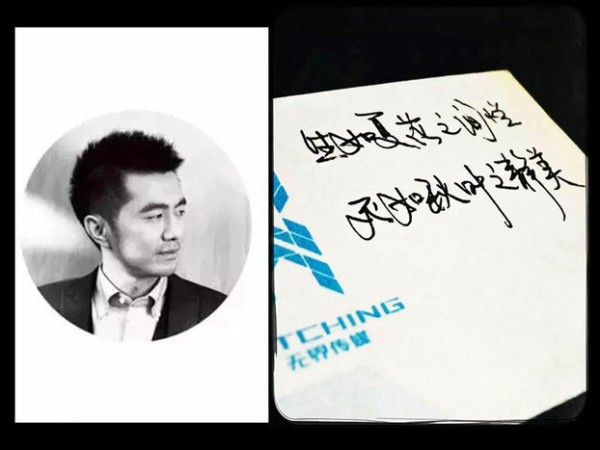 生如夏花之绚烂
死如秋叶之静美
TCHING
无界传媒